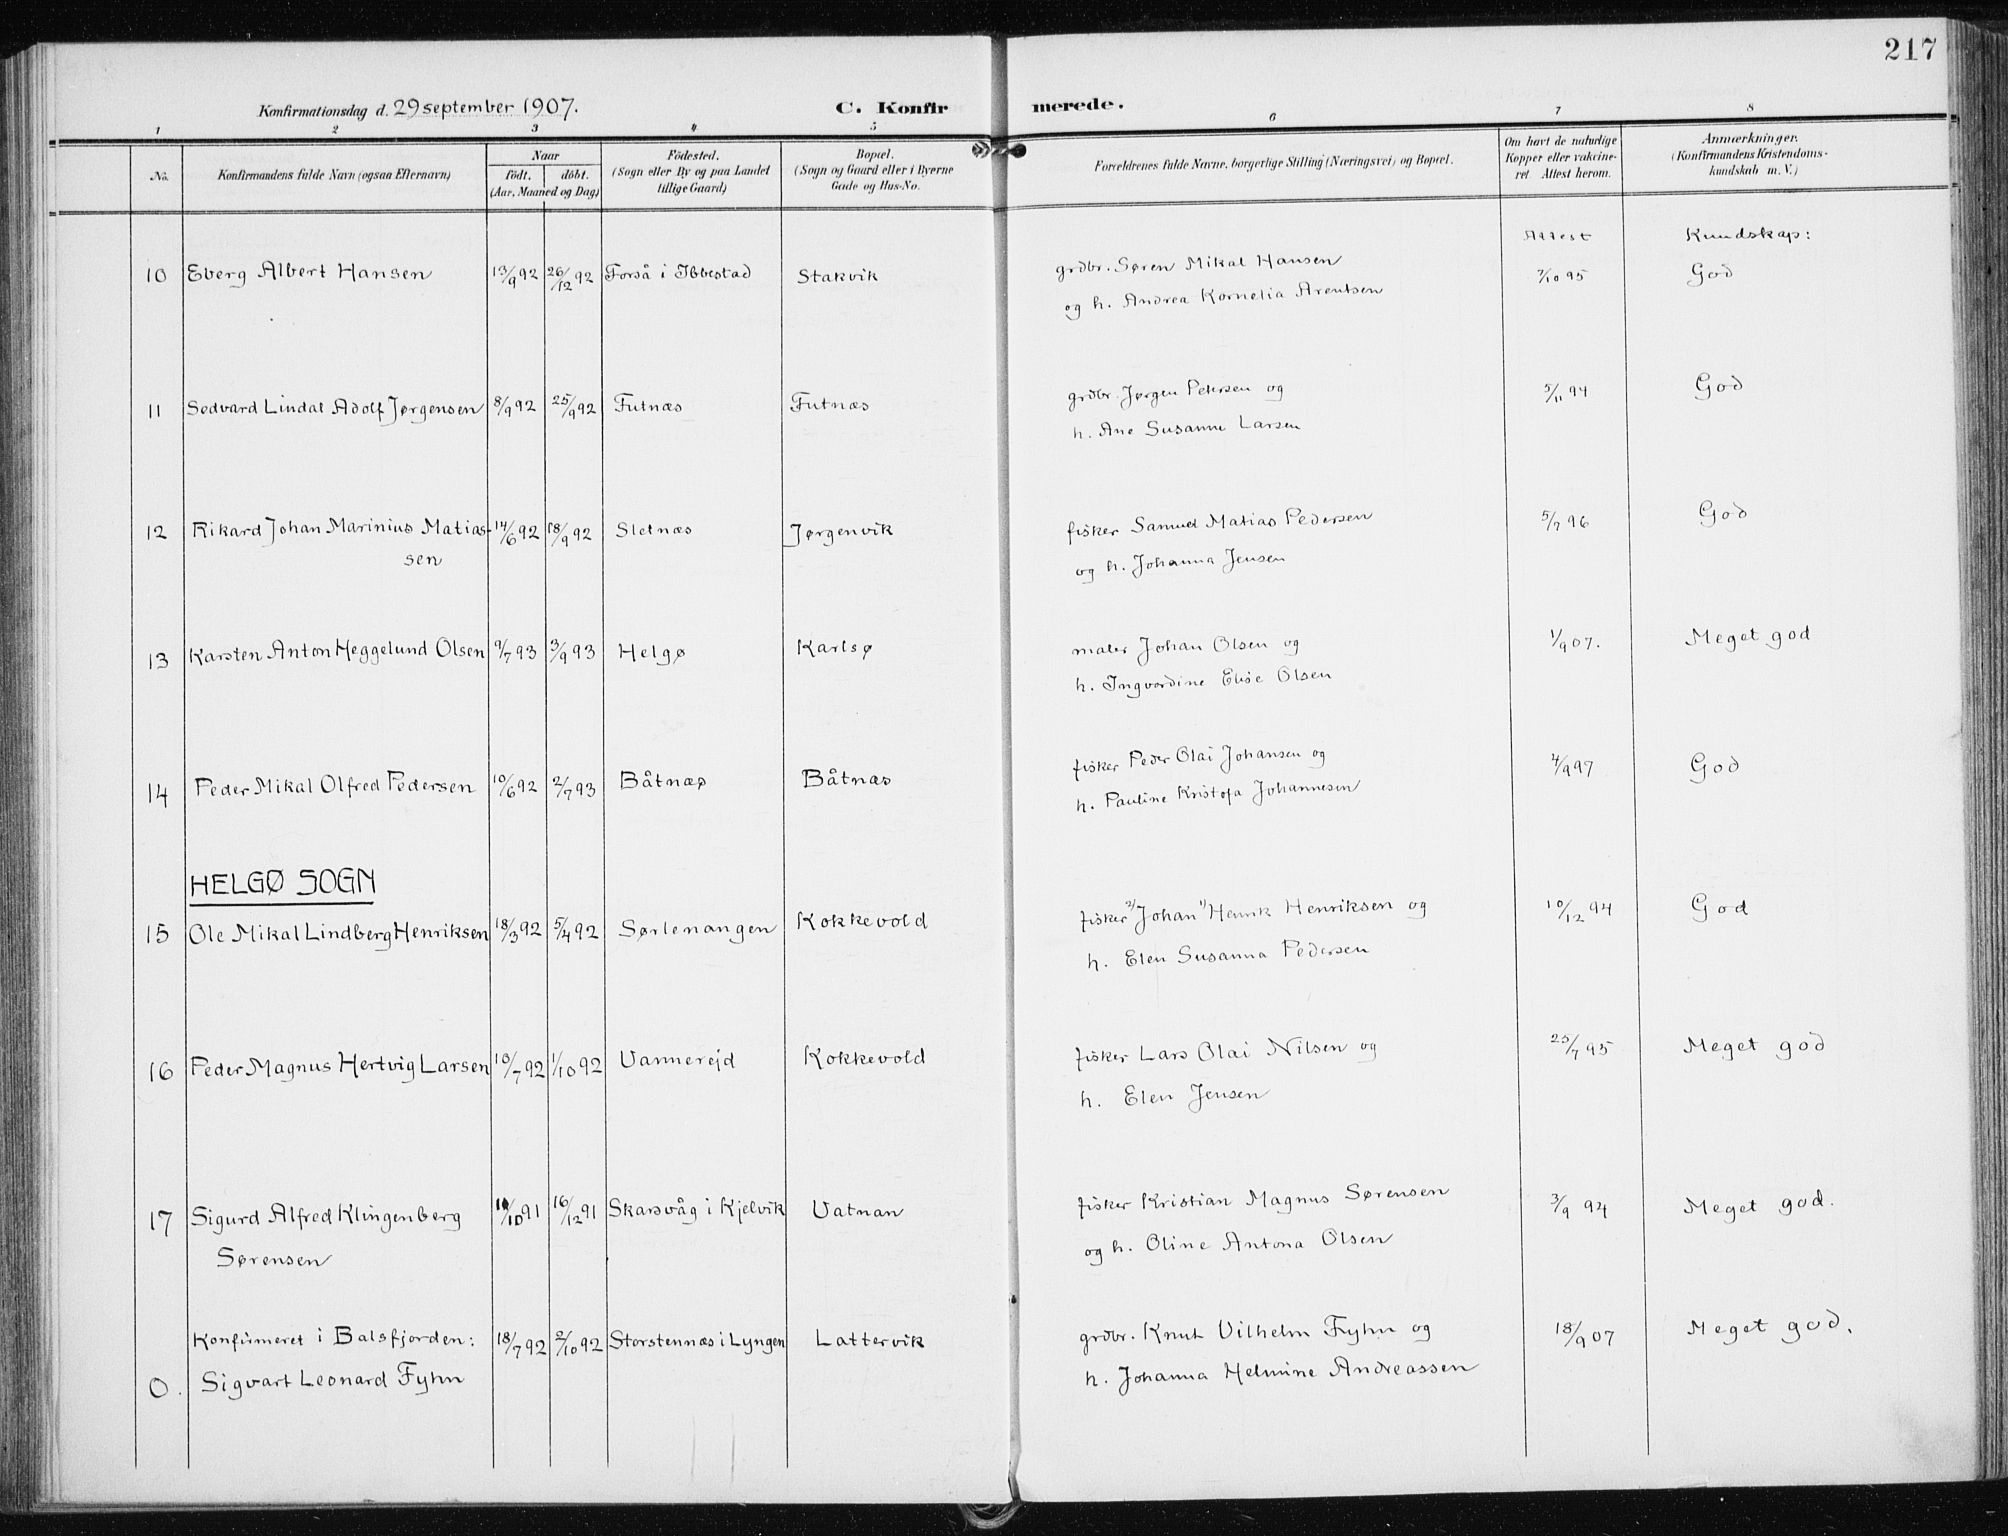 217
Konfirmationsdag d. 29 september 1907. C. Konfirmerede.
1 2 3 4 5 6 7 8
No. Konfirmandens fulde Navn (ogsaa Efternavn) Naar födt. döbt. (Aar, Maaned og Dag) Födested. (Sogn eller By og paa Landet tillige Gaard) Bopæl. (Sogn og Gaard eller i Byerne Gade og Hus-No. Forældrenes fulde Navne, borgerlige Stilling (Næringsvei) og Bopæl. Om havt de naturlige Kopper eller vakcineret. Attest herom. Anmærkninger. (Konfirmandens Kristendomskundskab m. V.)
Attest Kundskap:
10 Eberg Albert Hansen 13/9 92 26/12 92 Forså i Ibbestad Stakvik grdbr. Søren Mikal Hansen 7/10 95 God
og h. Andrea Kornelia Arentsen
11 Sedvard Lindal Adolf Jørgensen 8/9 92 25/9 92 Futnæs Futnæs grdbr. Jørgen Petersen og 5/11 94 God
h. Ane Susanne Larsen
12 Rikard Johan Marinius Matias- 14/6 92 18/9 92 Sletnæs Jørgenvik fisker Samuel Matias Pedersen 5/7 96 God
sen og h. Johanna Jensen
13 Karsten Anton Heggelund Olsen 9/7 93 3/9 93 Helgø Karlsø maler Johan Olsen og 1/9 07. Meget god
h. Ingvardine Elise Olsen
14 Peder Mikal Olfred Pedersen 10/6 92 2/7 93 Båtnæs Båtnæs fisker Peder Olai Johansen og 4/9 97 God
h. Pauline Kristofa Johannesen
HELGØ SOGN
15 Ole Mikal Lindberg Henriksen 18/3 92 5/4 92 Sørlenangen Kokkevold fisker 2/ Johan 1/ Henrik Henriksen og 10/12 94 God
h. Elen Susanna Pedersen
16 Peder Magnus Hertvig Larsen 10/7 92 1/10 92 Vannerejd Kokkevold fisker Lars Olai Nilsen og 25/7 95 Meget god
h. Elen Jensen
17 Sigurd Alfred Klingenberg /10 91 16/12 91 Skarsvåg i Kjelvik Vatnan fisker Kristian Magnus Sørensen 3/9 94 Meget god.
Sørensen og h. Oline Antona Olsen
Konfirmeret i Balsfjorden: 18/7 92 2/10 92 Storstennæs i Lyngen Lattervik grdbr. Knut Vilhelm Fyhn og 18/9 07 Meget god.
0. Sigvart Leonard Fyhn h. Johanna Helmine Andreassen